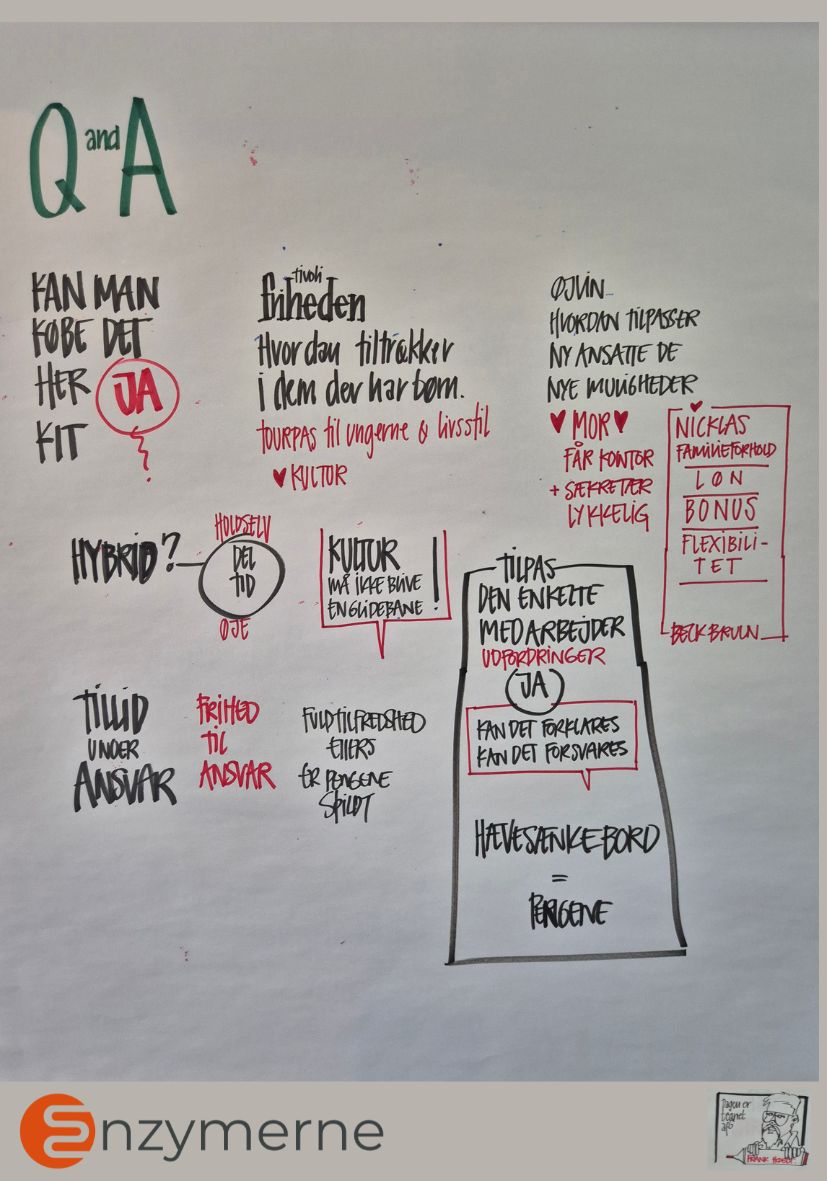 Q and A
KAN MAN
KØBE DET
HER JA
KIT
tivoli
friheden
Hvordan tiltrækker
i dem der har børn.
TOURPAS til ungerne & livsstil
♥ KULTUR
ØJVIN
HVORDAN TILPASSER
NY ANSATTE DE
NYE MULIGHEDER
♥ MOR ♥
FÅR KONTOR
+ SÆKRETÆR
LYKKELIG
NICKLAS
FAMILIEFORHOLD
LØN
BONUS
FLEXIBILI-
TET
BECH BRUUN
HYBRID?
HOLDSELV
DEL
TID
ØJE
KULTUR
MÅ IKKE BLIVE
EN GLIDEBANE !
TILPAS
DEN ENKELTE
MEDARBEJDER
UDFORDRINGER
JA
KAN DET FORKLARES
KAN DET FORSVARES
HÆVESÆNKEBORD
=
PENGENE
TILLID
UNDER
ANSVAR
FRIHED
TIL
ANSVAR
FULD TILFREDSHED
ELLERS
ER PENGENE
SPILDT
enzymerne
Dagen er
tegnet
af